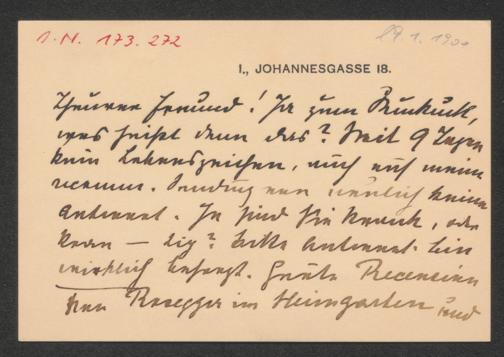 I. N. 173.272
29.1.1900
I., JOHANNESGASSE 18.
Theurer Freund! Ja zum Kuckuck,
was heißt denn das? Seit 9 Tagen
kein Lebenszeichen, auch auf meine
recomm. Sendung von neulich keine
Antwort. Ja sind Sie krank, oder
kran — dig? Bitte Antwort. Bin
wirklich besorgt. Heute Recension
von Rosegger im Heimgarten und